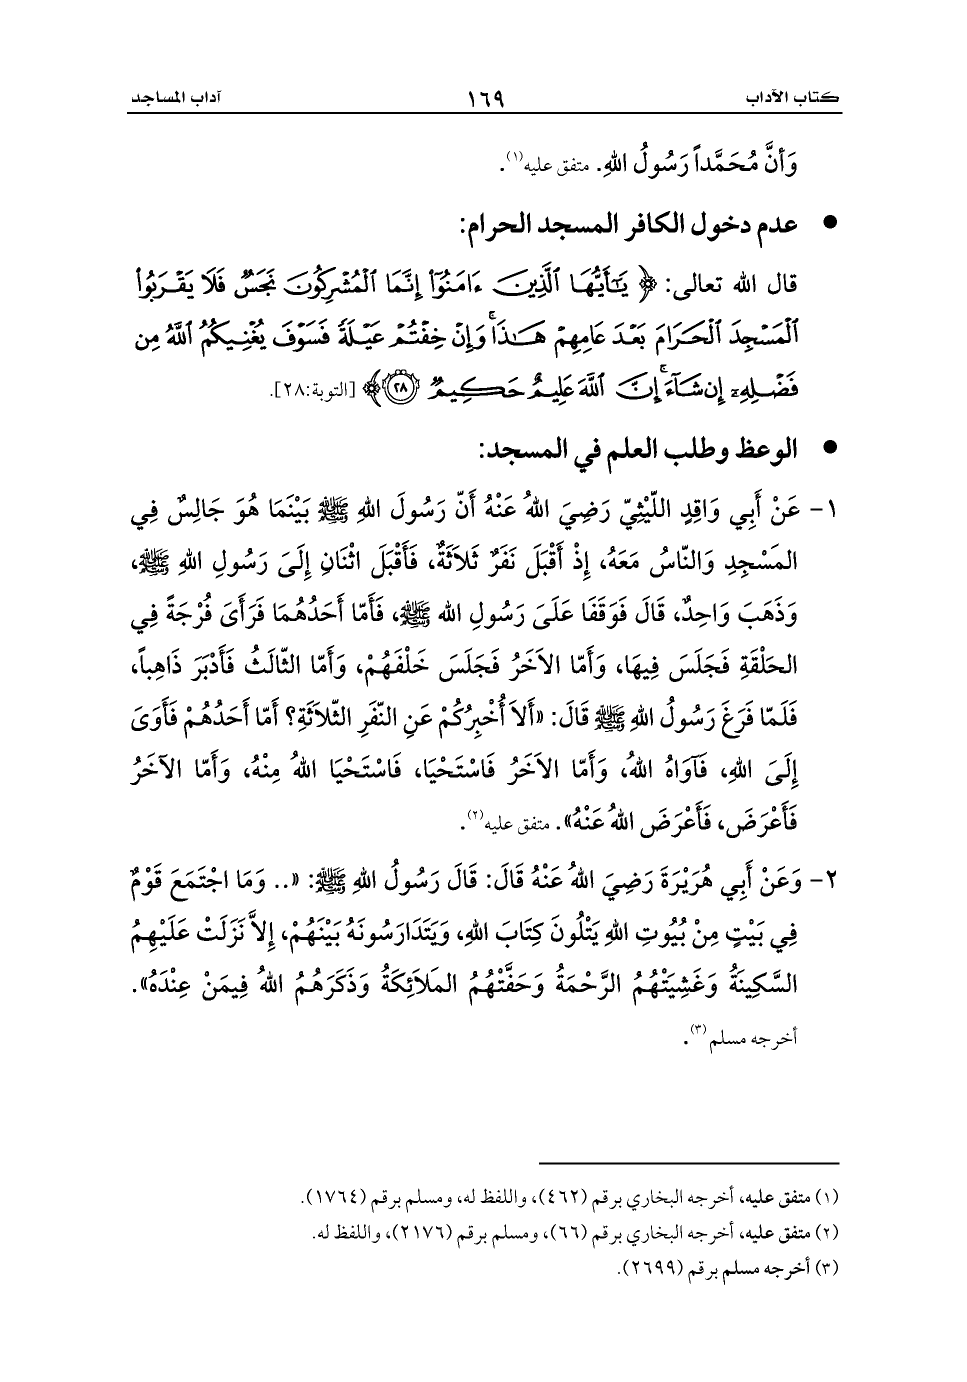 كتاب الآداب ١٦٩ آداب المساجد
وَأنَّ مُحَمَّداً رَسُولُ اللهِ. متفق عليه(١).
● عدم دخول الكافر المسجد الحرام:
قال الله تعالى: ﴿ يَٰٓأَيُّهَا ٱلَّذِينَ ءَامَنُوٓاْ إِنَّمَا ٱلْمُشْرِكُونَ نَجَسٌ فَلَا يَقْرَبُواْ
ٱلْمَسْجِدَ ٱلْحَرَامَ بَعْدَ عَامِهِمْ هَٰذَا ۚ وَإِنْ خِفْتُمْ عَيْلَةً فَسَوْفَ يُغْنِيكُمُ ٱللَّهُ مِن
فَضْلِهِۦٓ إِن شَآءَ ۚ إِنَّ ٱللَّهَ عَلِيمٌ حَكِيمٌ ۝٢٨ ﴾ [التوبة:٢٨].
● الوعظ وطلب العلم في المسجد:
١- عَنْ أَبِي وَاقِدٍ اللّيْثِيّ رَضِيَ اللهُ عَنْهُ أَنّ رَسُولَ اللهِ ﷺ بَيْنَمَا هُوَ جَالِسٌ فِي
المَسْجِدِ وَالنّاسُ مَعَهُ، إِذْ أَقْبَلَ نَفَرٌ ثَلاَثَةٌ، فَأَقْبَلَ اثْنَانِ إِلَىَ رَسُولِ اللهِ ﷺ،
وَذَهَبَ وَاحِدٌ، قَالَ فَوَقَفَا عَلَىَ رَسُولِ الله ﷺ، فَأَمّا أَحَدُهُمَا فَرَأَىَ فُرْجَةً فِي
الحَلْقَةِ فَجَلَسَ فِيهَا، وَأَمّا الاَخَرُ فَجَلَسَ خَلْفَهُمْ، وَأَمّا الثّالَثُ فَأَدْبَرَ ذَاهِباً،
فَلَمّا فَرَغَ رَسُولُ اللهِ ﷺ قَالَ: «أَلاَ أُخْبِرُكُمْ عَنِ النّفَرِ الثّلاَثَةِ؟ أَمّا أَحَدُهُمْ فَأَوَىَ
إِلَىَ اللهِ، فَآوَاهُ اللهُ، وَأَمّا الاَخَرُ فَاسْتَحْيَا، فَاسْتَحْيَا اللهُ مِنْهُ، وَأَمّا الآخَرُ
فَأَعْرَضَ، فَأَعْرَضَ اللهُ عَنْهُ». متفق عليه(٢).
٢- وَعَنْ أَبِي هُرَيْرَةَ رَضِيَ اللهُ عَنْهُ قَالَ: قَالَ رَسُولُ اللهِ ﷺ: «.. وَمَا اجْتَمَعَ قَوْمٌ
فِي بَيْتٍ مِنْ بُيُوتِ اللهِ يَتْلُونَ كِتَابَ اللهِ، وَيَتَدَارَسُونَهُ بَيْنَهُمْ، إِلاَّ نَزَلَتْ عَلَيْهِمُ
السَّكِينَةُ وَغَشِيَتْهُمُ الرَّحْمَةُ وَحَفَّتْهُمُ المَلاَئِكَةُ وَذَكَرَهُمُ اللهُ فِيمَنْ عِنْدَهُ».
أخرجه مسلم(٣).
(١) متفق عليه، أخرجه البخاري برقم (٤٦٢)، واللفظ له، ومسلم برقم (١٧٦٤).
(٢) متفق عليه، أخرجه البخاري برقم (٦٦)، ومسلم برقم (٢١٧٦)، واللفظ له.
(٣) أخرجه مسلم برقم (٢٦٩٩).